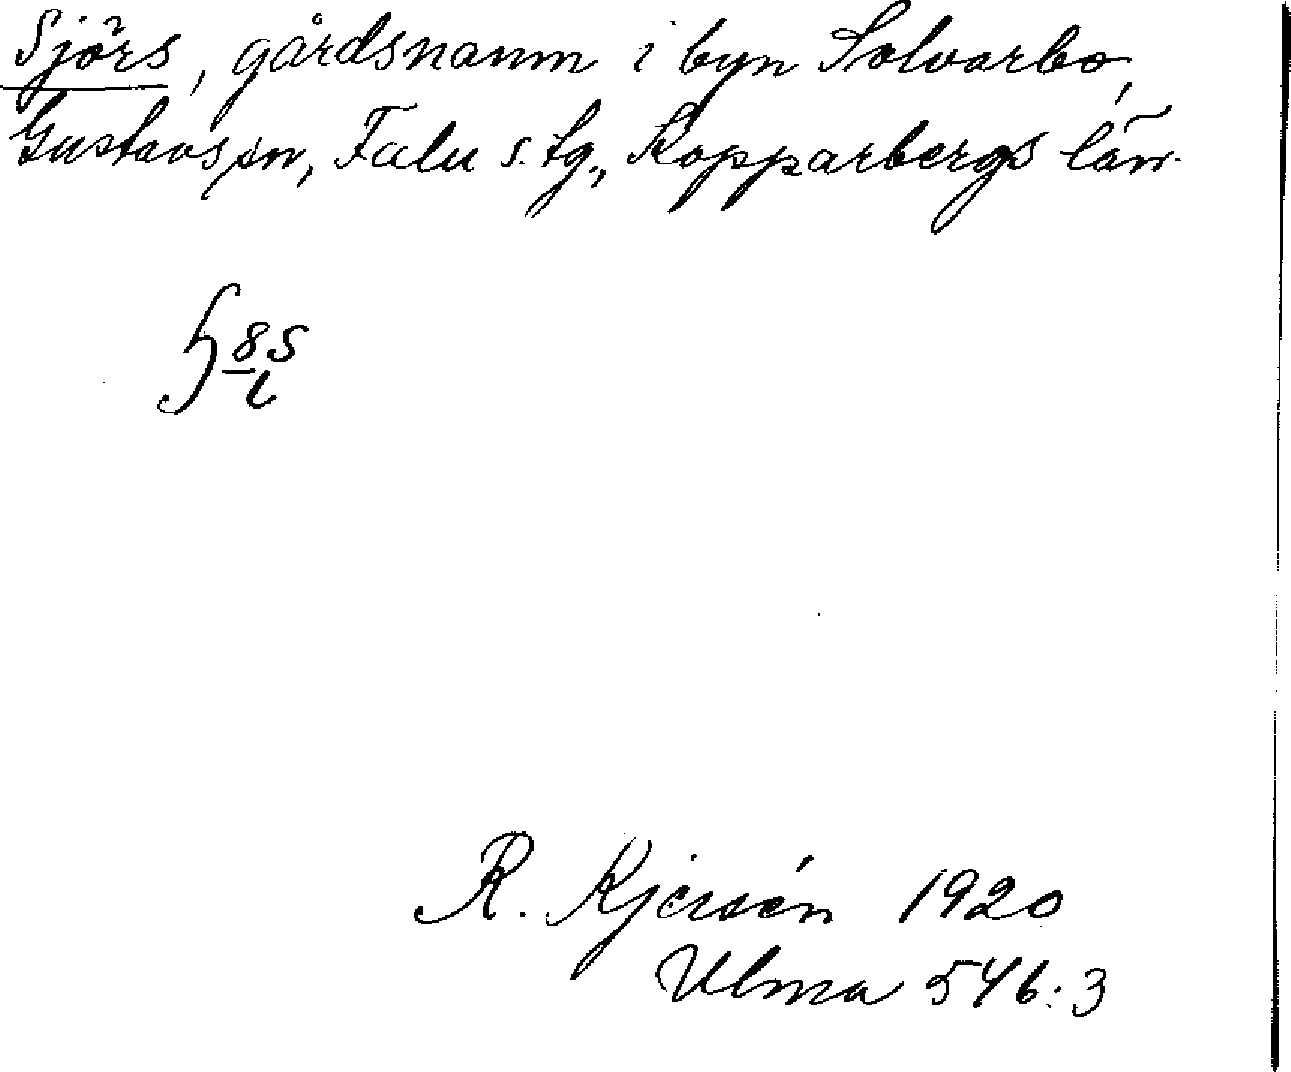 Sjörs, gårdsnamn i byn Solvarbo,
Gustavs sn, Falu s. tg., Kopparbergs län.
R. Kjersén 1920
Ulma 546:3